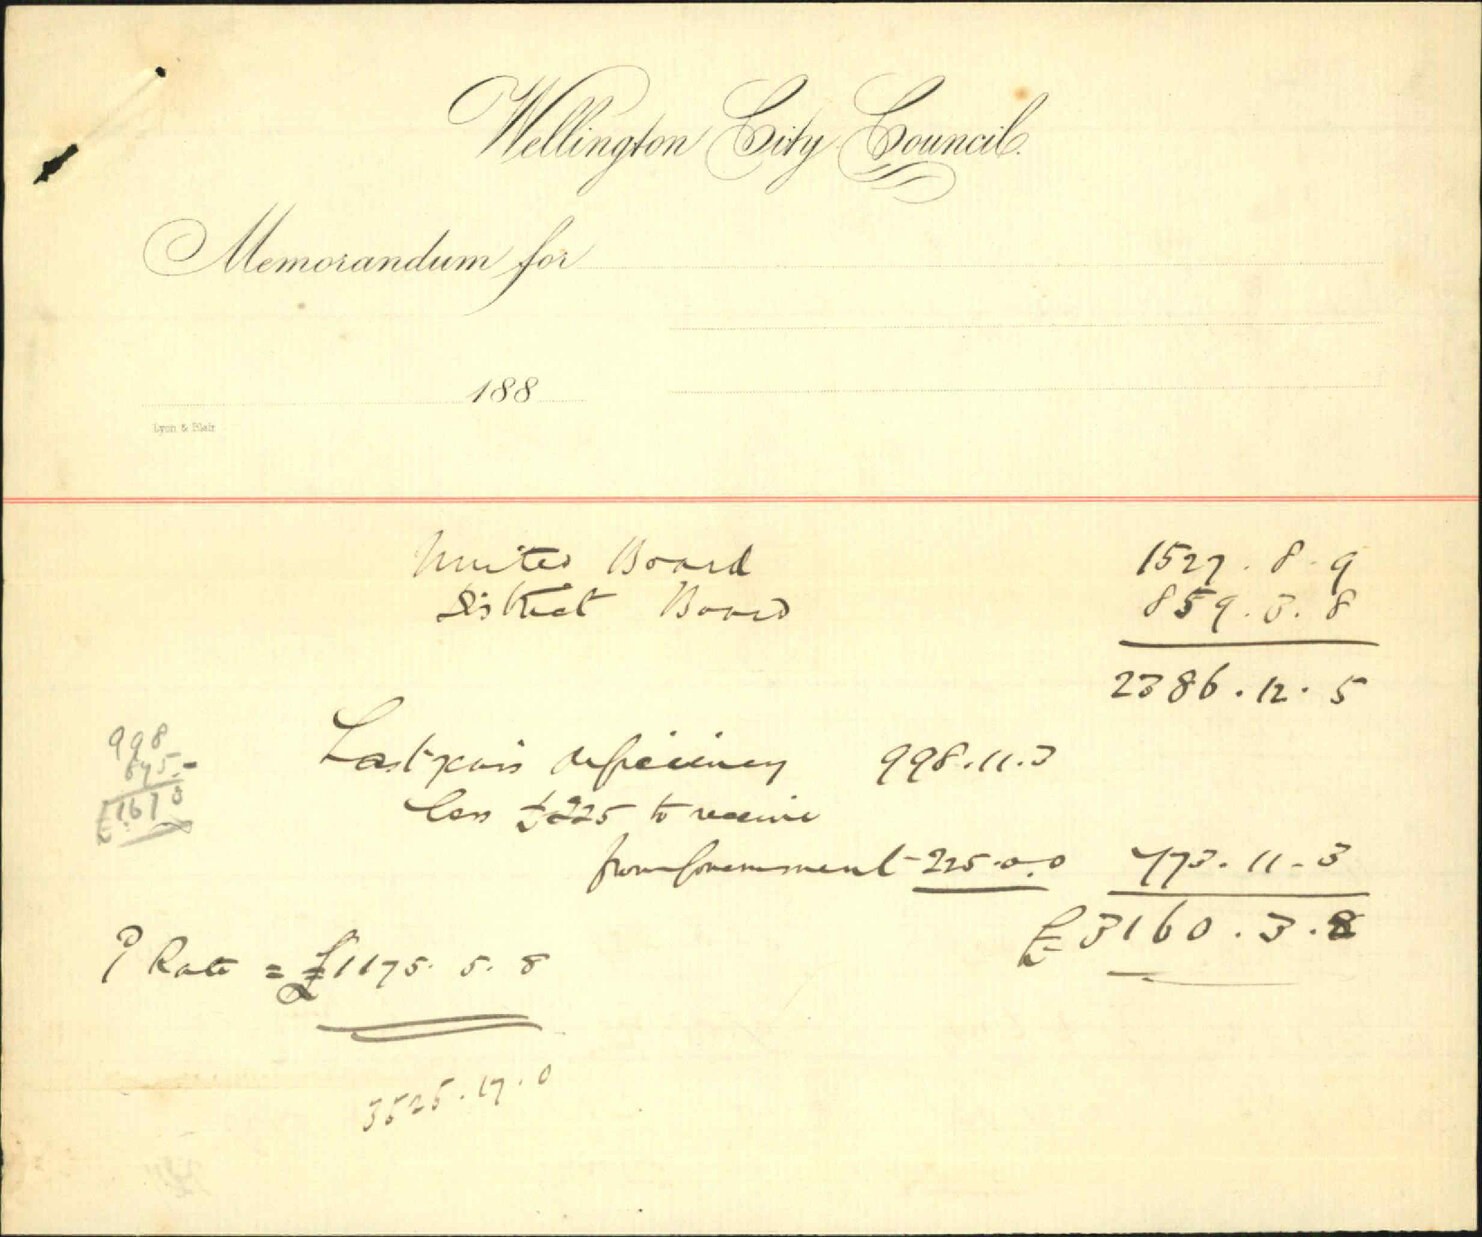 Wellington City Council.
Memorandum for
188
Lyon & Blair
United Board 1527. 8. 9
District Board 859. 3. 8
2386. 12. 5
998
675. -
£1673
Last years deficiency 998. 11. 3
less £225 to receive
from Government 225. 0. 0 773. 11. 3
£3160. 3. 8
Rate = £1175. 5. 8
3525. 17. 0